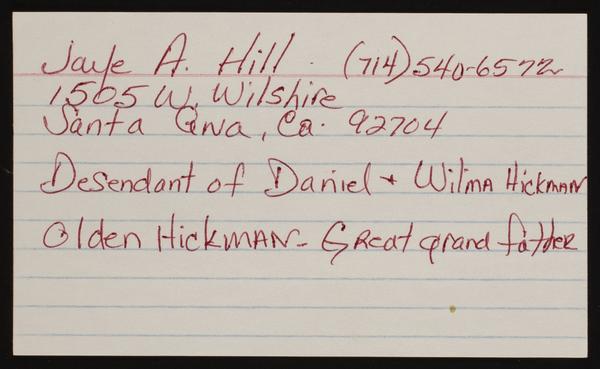 Jaye A. Hill. (714) 540-6572
1505 W. Wilshire
Santa Ana, Ca. 92704
Desendant of Daniel + Wilma Hickman
Olden Hickman - Great grand father